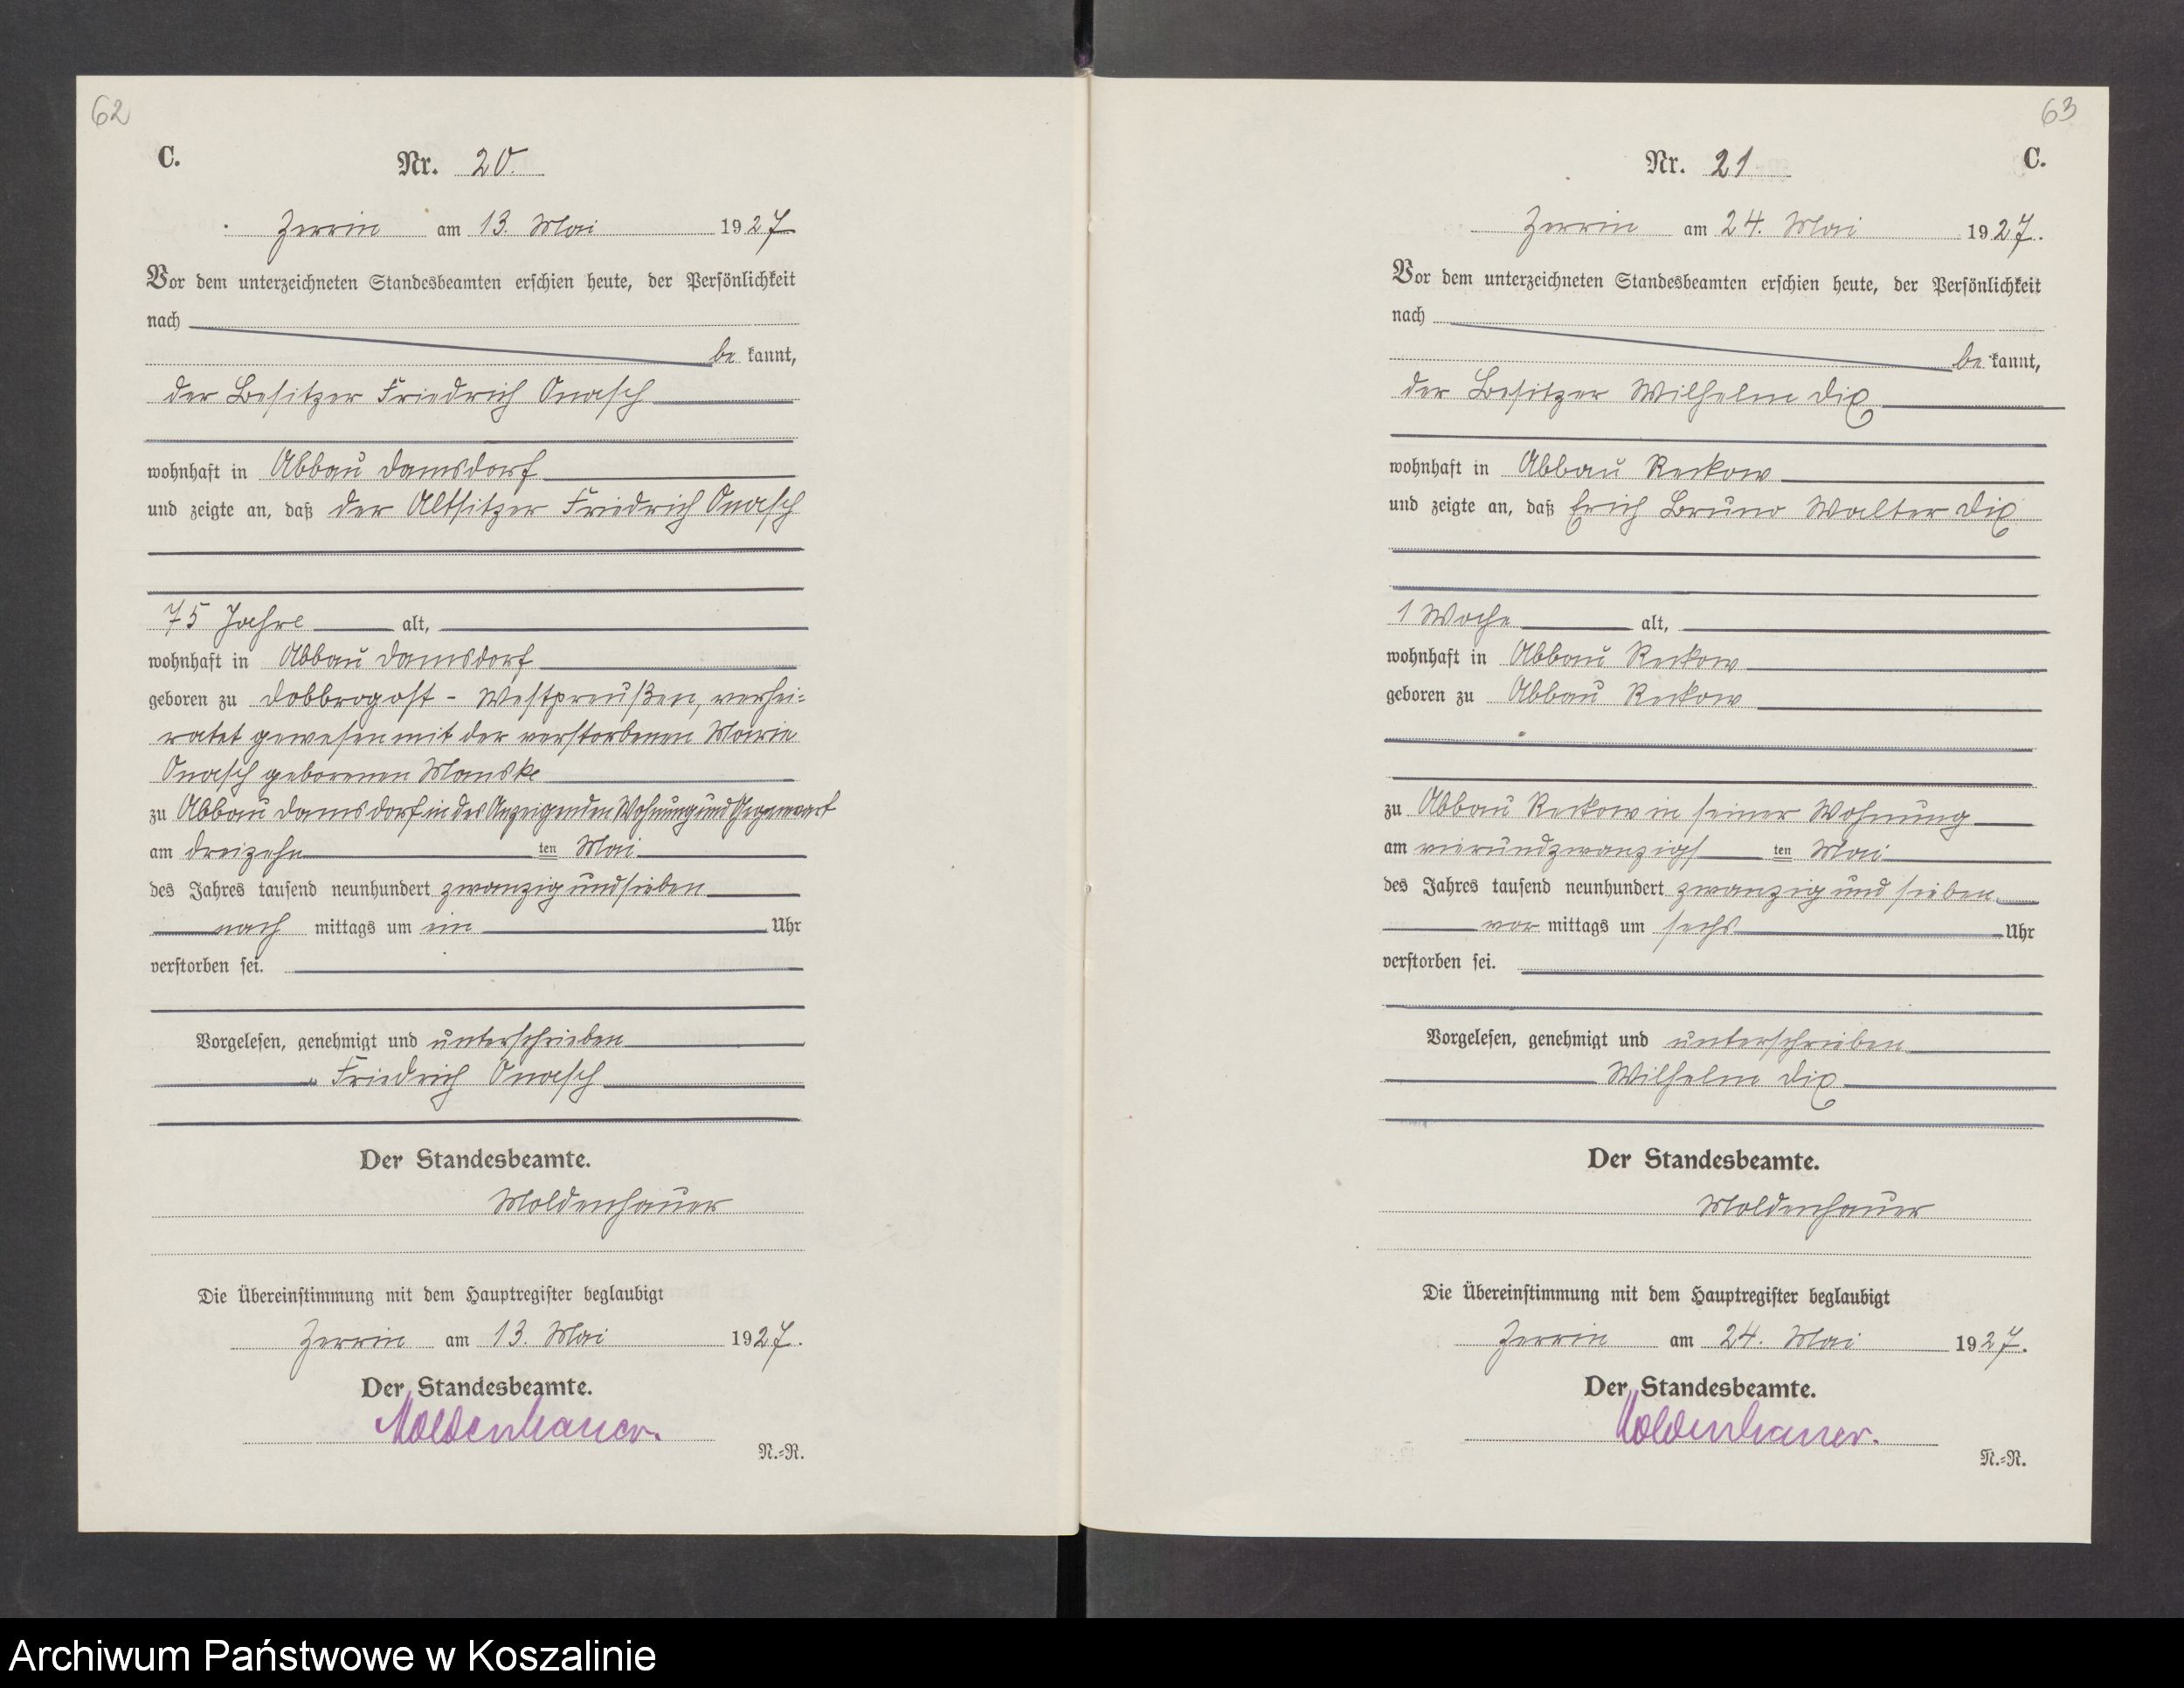 62
C.
Nr. 20.
Zerrin am 13. Mai 1927
Vor dem unterzeichneten Standesbeamten erschien heute, der Persönlichkeit
nach
be kannt,
der Besitzer Friedrich Onasch
wohnhaft in Abbau Damsdorf
und zeigte an, daß der Altsitzer Friedrich Onasch
75 Jahre alt,
wohnhaft in Abbau Damsdorf
geboren zu Dobbrogost - Westpreußen, verhei-
ratet gewesen mit der verstorbenen Marie
Onasch geborenen Manske
zu Abbau Damsdorf in des Anzeigenden Wohnung und Gegenwart
am dreizehn ten Mai
des Jahres tausend neunhundert zwanzig und sieben
nach mittags um ein Uhr
verstorben sei.
Vorgelesen, genehmigt und unterschrieben
Friedrich Onasch
Der Standesbeamte.
Moldenhauer
Die Übereinstimmung mit dem Hauptregister beglaubigt
Zerrin am 13. Mai 1927.
Der Standesbeamte.
Moldenhauer.
N.=R.
63
C.
Nr. 21
Zerrin am 24. Mai 1927.
Vor dem unterzeichneten Standesbeamten erschien heute, der Persönlichkeit
nach
be kannt,
der Besitzer Wilhelm Dix
wohnhaft in Abbau Reckow
und zeigte an, daß Erich Bruno Walter Dix
1 Woche alt,
wohnhaft in Abbau Reckow
geboren zu Abbau Reckow
zu Abbau Reckow in seiner Wohnung
am vierundzwanzigs ten Mai
des Jahres tausend neunhundert zwanzig und sieben
vor mittags um sechs Uhr
verstorben sei.
Vorgelesen, genehmigt und unterschrieben
Wilhelm Dix
Der Standesbeamte.
Moldenhauer
Die Übereinstimmung mit dem Hauptregister beglaubigt
Zerrin am 24. Mai 1927.
Der Standesbeamte.
Moldenhauer.
N.=R.
Archiwum Państwowe w Koszalinie